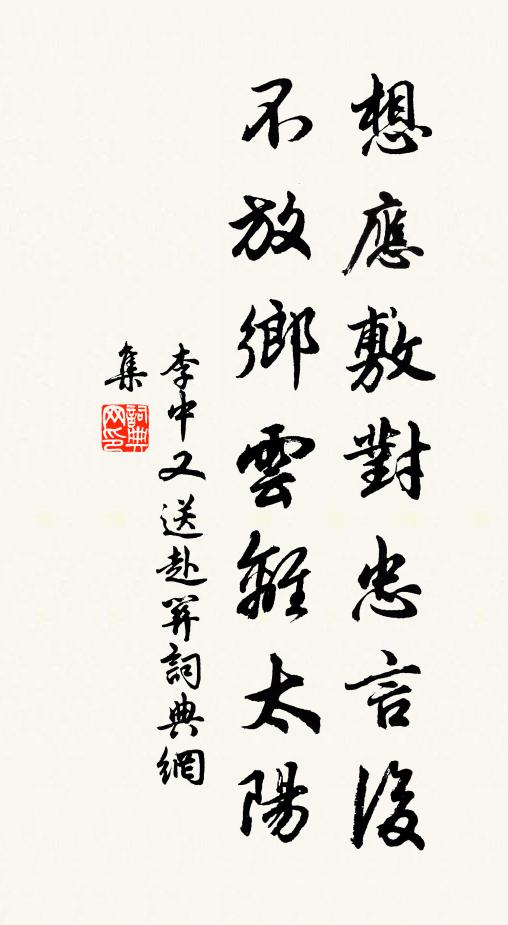 想應敷對忠言後
不放鄉雲離太陽
李中又送赴關詞典網
集
詞典
网印